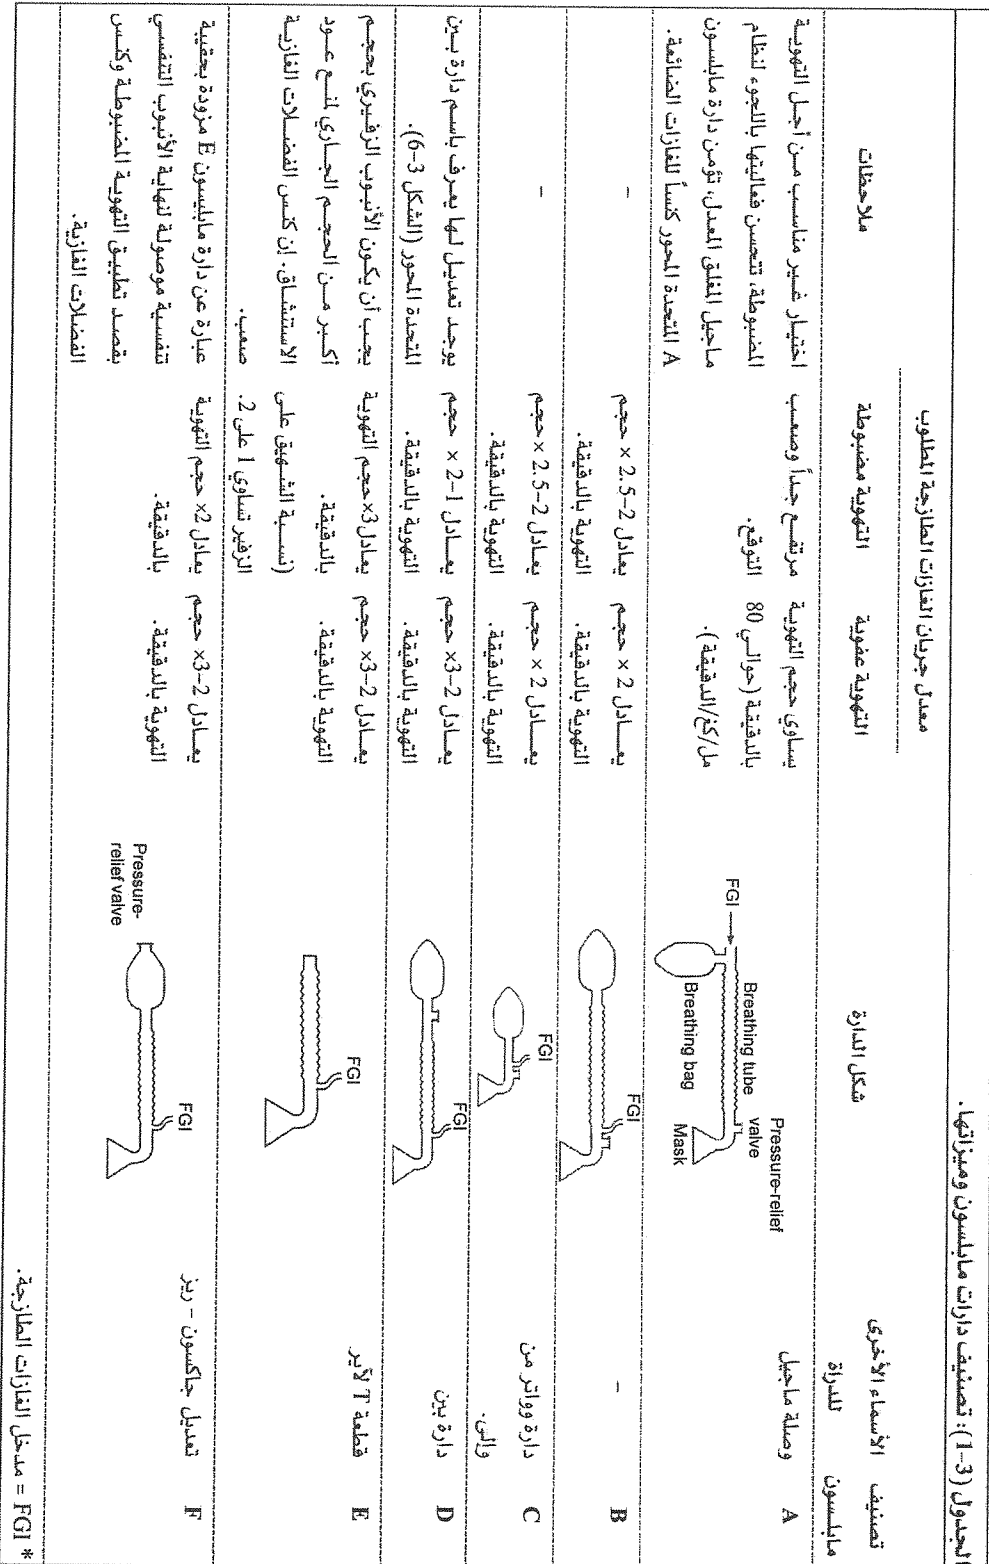 الجدول (3-1): تصنيف دارات مابلسون وميزاتها.
تصنيف
مابلسون
الأسماء الأخرى
للدراة
شكل الدارة
معدل جريان الغازات الطازجة المطلوب
التهوية عفوية
التهوية مضبوطة
ملاحظات
A
وصلة ماجيل
FGI
Breathing tube
Breathing bag
Pressure-relief
valve
Mask
يساوي حجم التهوية
بالدقيقة (حوالي 80
مل/كغ/الدقيقة).
مرتفع جداً وصعب
التوقع.
اختيار غير مناسب من أجل التهوية
المضبوطة، تتحسن فعاليتها باللجوء لنظام
ماجيل المغلق المعدل، تؤمن دارة مابلسون
A المتحدة المحور كنساً للغازات الضائعة.
B
–
FGI
يعادل 2 × حجم
التهوية بالدقيقة.
يعادل 2-2.5 × حجم
التهوية بالدقيقة.
–
C
دارة وواتر من
والى.
FGI
يعادل 2 × حجم
التهوية بالدقيقة.
يعادل 2-2.5 × حجم
التهوية بالدقيقة.
–
D
دارة بين
FGI
يعادل 2-3× حجم
التهوية بالدقيقة.
يعادل 1-2 × حجم
التهوية بالدقيقة.
يوجد تعديل لها يعرف باسم دارة بين
المتحدة المحور (الشكل 3-6).
E
قطعة T لآير
FGI
يعادل 2-3× حجم
التهوية بالدقيقة.
يعادل 3×حجم التهوية
بالدقيقة.
(نسبة الشهيق على
الزفير تساوي 1 على 2.
يجب أن يكون الأنبوب الزفيري بحجم
أكبر من الحجم الجاري لمنع عود
الاستنشاق. إن كنس الفضلات الغازية
صعب.
F
تعديل جاكسون - ريز
Pressure-
relief valve
FGI
يعادل 2-3× حجم
التهوية بالدقيقة.
يعادل 2× حجم التهوية
بالدقيقة.
عبارة عن دارة مابليسون E مزودة بحقيبة
تنفسية موصولة لنهاية الأنبوب التنفسي
بقصد تطبيق التهوية المضبوطة وكنس
الفضلات الغازية.
* FGI = مدخل الغازات الطازجة.